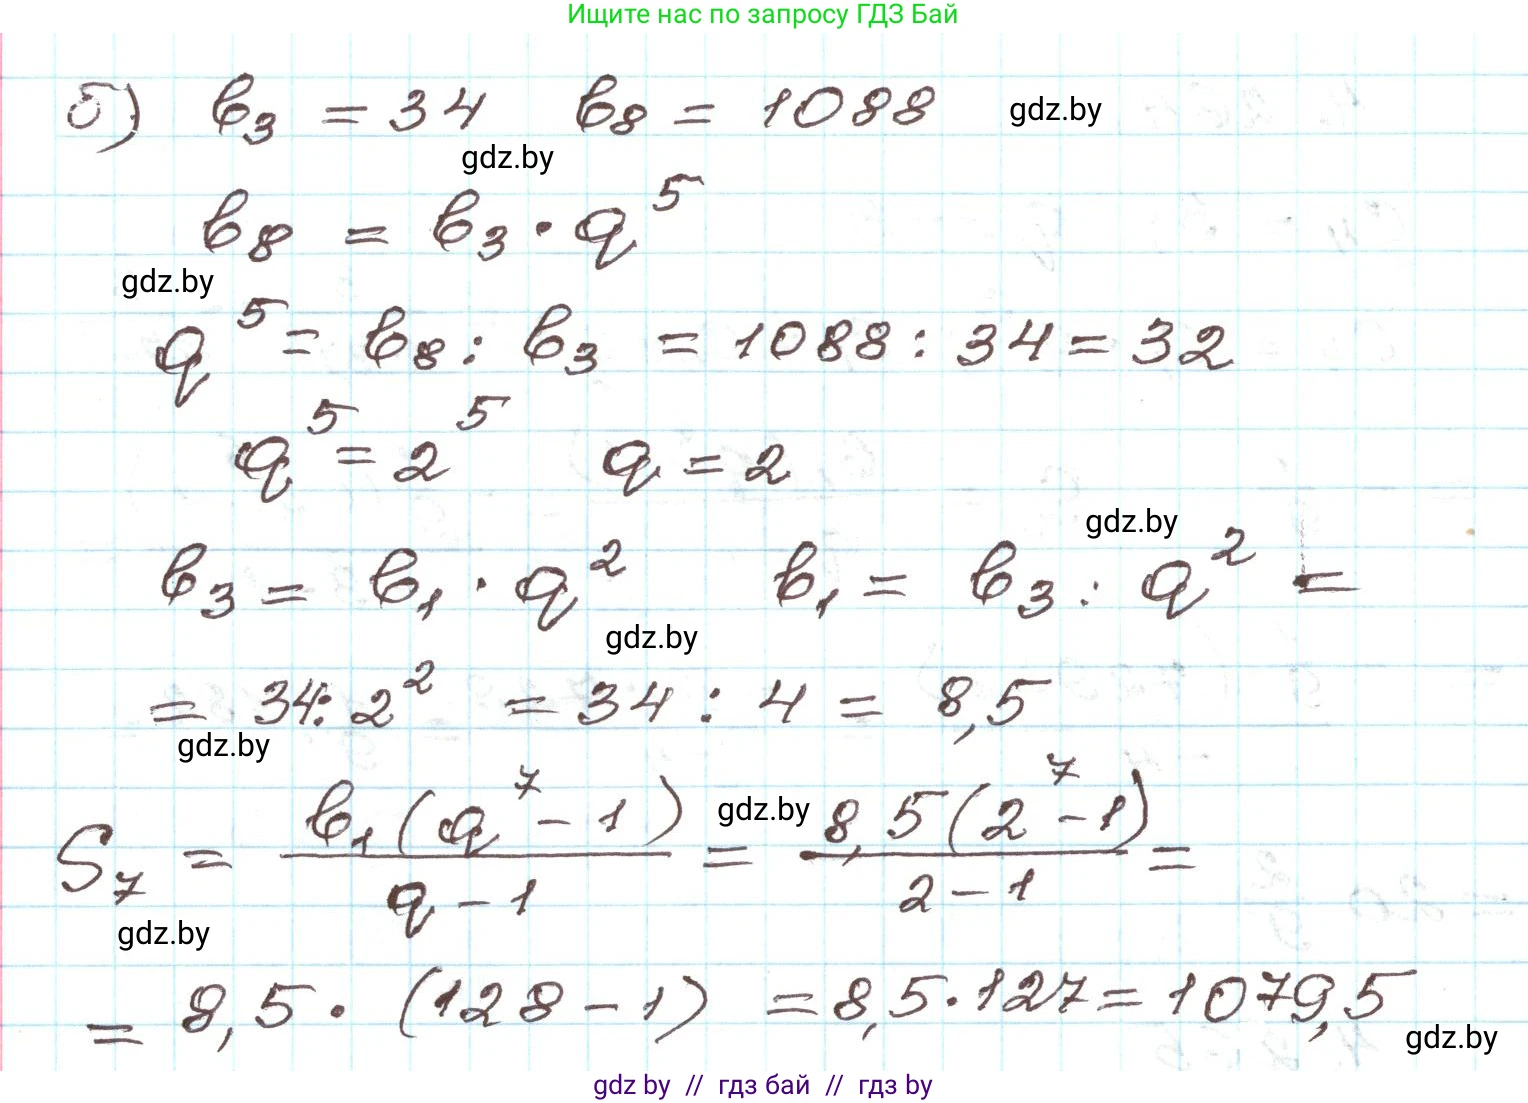 Ищите нас по запросу ГДЗ Бай
б) b₃ = 34 b₈ = 1088 gdz.by
gdz.by
b₈ = b₃ · q⁵
gdz.by
q⁵ = b₈ : b₃ = 1088 : 34 = 32
q⁵ = 2⁵ q = 2
gdz.by
b₃ = b₁ · q² b₁ = b₃ : q² =
gdz.by
= 34 : 2² = 34 : 4 = 8,5
gdz.by
S₇ = b₁(q⁷ - 1) / (q - 1) = 8,5(2⁷ - 1) / (2 - 1) =
gdz.by
gdz.by
= 8,5 · (128 - 1) = 8,5 · 127 = 1079,5
gdz.by
gdz by // гдз бай // гдз by